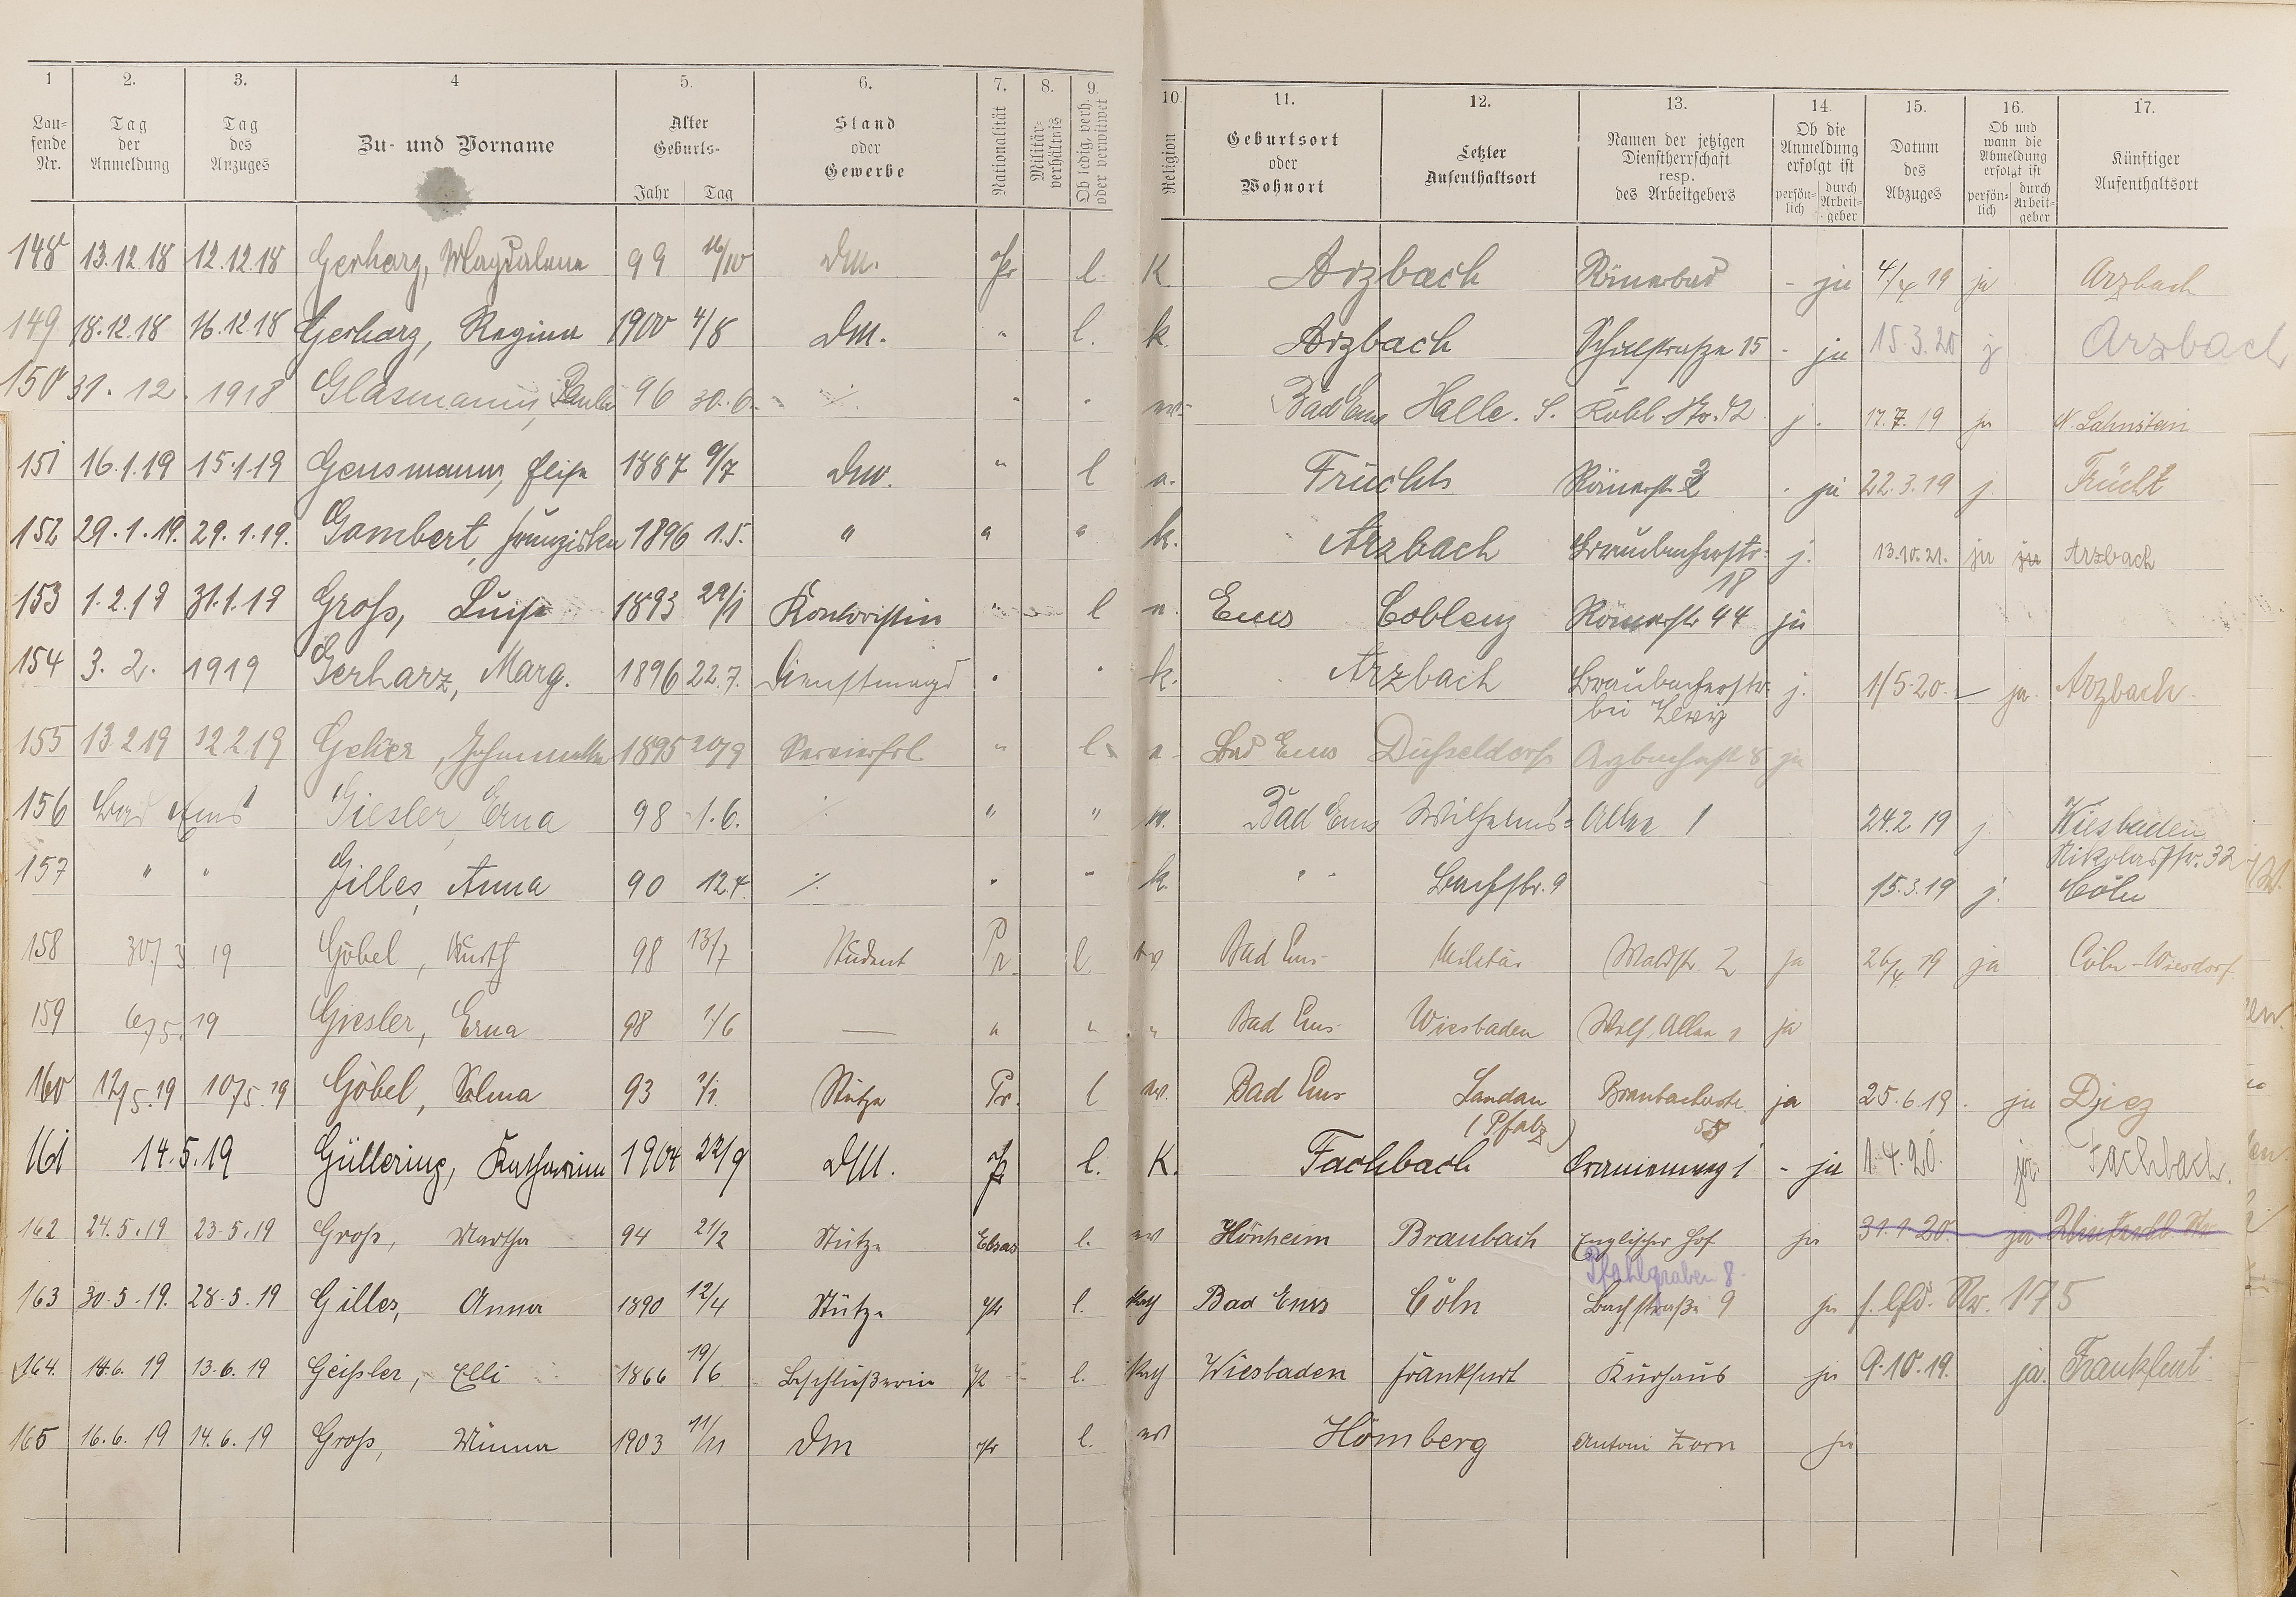 1 2. 3. 4 5. 6. 7. 8. 9. 10. 11. 12. 13. 14. 15. 16. 17.
Lau-fende Nr. Tag der Anmeldung Tag des Anzuges Zu- und Vorname Alter Geburts- Jahr Tag Stand oder Gewerbe Nationalität Militär-verhältnis Ob ledig, verh. oder verwitwet Religion Geburtsort oder Wohnort Letzter Aufenthaltsort Namen der jetzigen Dienstherrschaft resp. des Arbeitgebers Ob die Anmeldung erfolgt ist persön-lich durch Arbeit-geber Datum des Abzuges Ob und wann die Abmeldung erfolgt ist persön-lich durch Arbeit-geber Künftiger Aufenthaltsort
148 13.12.18 12.12.18 Gerharz, Magdalena 99 16/10 DM. Pr l. K. Arzbach Römerbad - ja 4/4 19 ja Arzbach
149 18.12.18 16.12.18 Gerharz, Regina 1900 4/8 DM. " l. k. Arzbach Schulstraße 15 - ja 15.3.20 j Arzbach
150 31. 12. 1918 Glasmann, Paula 96 30.6. ./. " " ev. Bad Ems Halle. S. Kobl. Str. 42 j. 17.7.19 ja N. Lahnstein
151 16.1.19 15.1.19 Gensmann, Elise 1887 9/7 DM. " l e. Früchts Römerstr. 2 . ja 22.3.19 j. Frücht
152 29.1.19. 29.1.19. Gombert, Franziska 1896 1.5. " " " k. Arzbach Braubacherstr. 18 j. 13.10.21. ja ja Arzbach
153 1.2.19 31.1.19 Groß, Luise 1893 29/1 Kontoristin " l e. Ems Coblenz Römerstr 44 ja
154 3. 2. 1919 Gerharz, Marg. 1896 22.7. Dienstmagd " " k. Arzbach Braubacherstr. bei Levy j. 1/5.20. - ja. Arzbach.
155 13 2 19 12 2 19 Geher, 1895 20/9 " l. e. Bad Ems Düsseldorf Arzbacherstr 8 ja
156 Bad Ems Giesler, Erna 98 1.6. ./. " " ev. Bad Ems Wilhelms- Allee 1 24.2.19 j. Wiesbaden Nikolasstr. 32
157 " " Gilles, Anna 90 12.4. ./. " " k. " " Bachstr. 9 15.3.19 j. Cöln
158 30/3 19 Göbel, Kurth 98 13/7 Student Pr. l. ev Bad Ems Militär Waldstr. 2 ja 26/4 19 ja Cöln-Wiesdorf
159 6/5.19 Giesler, Erna 98 1/6 — " " " Bad Ems Wiesbaden Wilh. Allee 1 ja
160 12/5.19 10/5.19 Göbel, Selma 93 7/1. Stütze Pr. l ev. Bad Ems Landau (Pfalz) Braubacherstr. ja 25.6.19. ja Diez
161 14.5.19 Güllering, Katharina 1904 22/9 DM. Pr l. K. Fachbach Oranienweg 1 - ja 1.4.20. ja Fachbach.
162 24.5.19 23.5.19 Groß, Martha 94 21/2 Stütze Elsas l. ev Hönheim Braubach Englischer Hof ja 31.1.20. ja
Pfahlgraben 8.
163 30.5.19. 28.5.19 Gilles, Anna 1890 12/4 Stütze Pr l. Kath Bad Ems Cöln Bachstraße 9 ja s. lfd. Nr. 175
164. 14.6. 19 13.6.19 Geißler, Elli 1866 19/6 Beschließerin Pr l. Kath Wiesbaden Frankfurt Kurhaus ja 9.10.19. ja. Frankfurt
165 16.6. 19 14.6.19 Groß, Minna 1903 11/11 DM Pr l. ev Hömberg Anton Zorn ja